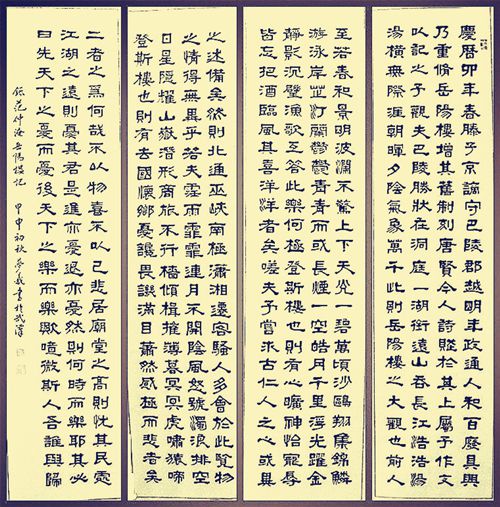 慶曆卯年春滕子京謫守巴陵郡越明年政通人和百廢具興
乃重脩岳陽樓增其舊制刻唐賢今人詩賦於其上屬予作文
以記之予觀夫巴陵勝狀在洞庭一湖銜遠山吞長江浩浩湯
湯橫無際涯朝暉夕陰氣象萬千此則岳陽樓之大觀也前人
至若春和景明波瀾不驚上下天光一碧萬頃沙鷗翔集錦鱗
游泳岸芷汀蘭鬱鬱青青而或長煙一空皓月千里浮光躍金
靜影沉璧漁歌互答此樂何極登斯樓也則有心曠神怡寵辱
皆忘把酒臨風其喜洋洋者矣嗟夫予嘗求古仁人之心或異
之述備矣然則北通巫峽南極瀟湘遷客騷人多會於此覽物
之情得無異乎若夫霪雨霏霏連月不開陰風怒號濁浪排空
日星隱耀山嶽潛形商旅不行檣傾楫摧薄暮冥冥虎嘯猿啼
登斯樓也則有去國懷鄉憂讒畏譏滿目蕭然感極而悲者矣
二者之為何哉不以物喜不以己悲居廟堂之高則憂其民處
江湖之遠則憂其君是進亦憂退亦憂然則何時而樂耶其必
曰先天下之憂而憂後天下之樂而樂歟噫微斯人吾誰與歸
錄范仲淹岳陽樓記 甲申初秋 書於武漢